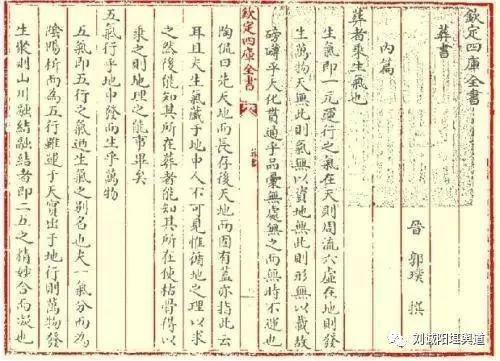 欽定四庫全書
葬書
晉 郭璞 撰
內篇
葬者乗生氣也
生氣即一元運行之氣在天則周流六虛在地則發
生萬物天無此則氣無以資地無此則形無以載故
磅礴乎大化貫通乎品彚無處無之而無時不運也
陶侃曰先天地而長存後天地而固有蓋亦指此云
耳且夫生氣藏于地中人不可見惟循地之理以求
之然後能知其所在葬者能知其所在使枯骨得以
乗之則地理之能事畢矣
五氣行乎地中發而生乎萬物
五氣即五行之氣迺生氣之别名也夫一氣分而為
陰陽析而為五行雖運于天實出于地行則萬物發
生聚則山川融結融結者即二五之精妙合而凝也
欽定四庫全書
葬書
刘诚阳堪舆道